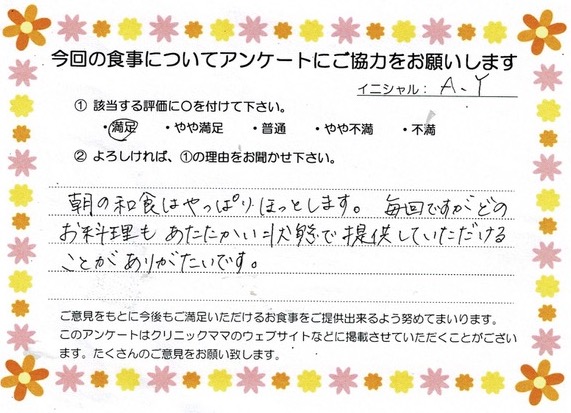 今回の食事についてアンケートにご協力をお願いします
イニシャル： A.Y
① 該当する評価に〇を付けて下さい。
・満足 ・やや満足 ・普通 ・やや不満 ・不満
② よろしければ、①の理由をお聞かせ下さい。
朝の和食はやっぱりほっとします。毎回ですがどの
お料理もあたたかい状態で提供していただける
ことがありがたいです。
ご意見をもとに今後もご満足いただけるお食事をご提供出来るよう努めてまいります。
このアンケートはクリニックママのウェブサイトなどに掲載させていただくことがござい
ます。たくさんのご意見をお願い致します。